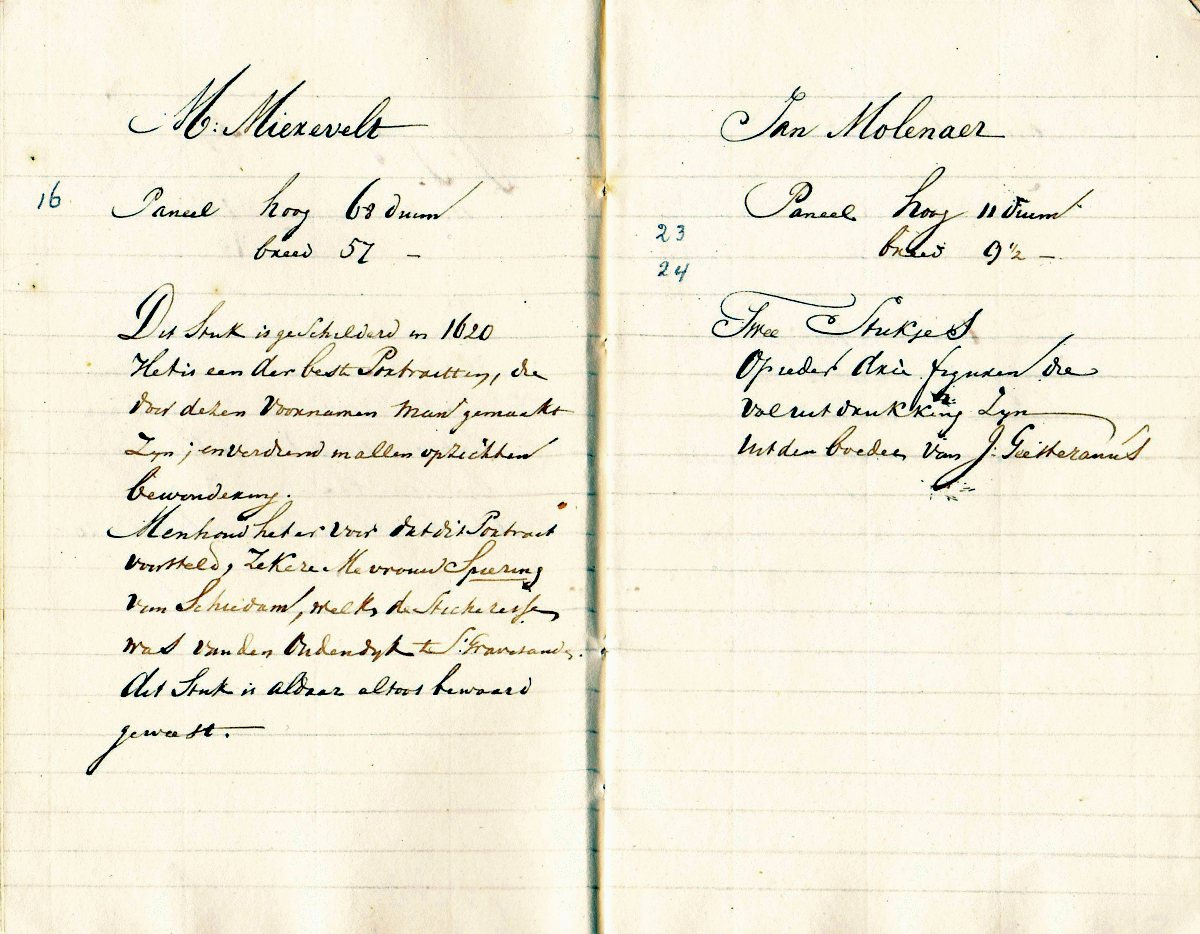 M: Mierevelt
16
Paneel hoog 68 duim
breed 57 -
Dit Stuk is geschilderd in 1620
Het is een der beste Portraitten, die
door dezen voornamen man gemaakt
Zyn; en verdiend in allen opzichten
bewondering.
Men houd het er voor dat dit Portrait
voorsteld, Zekere Mevrouw Spiering
van Schiedam, welke de Stichteresse
was van den Oudendyk te S: Gravesande.
dit Stuk is aldaar altoos bewaard
geweest.
Jan Molenaer
Paneel hoog 11 duim
23
breed 9 1/2 -
24
Twee Stukjes
Op ieder drie figuren die
vol uitdrukking Zyn
uit den boedel van J: Gesteranus